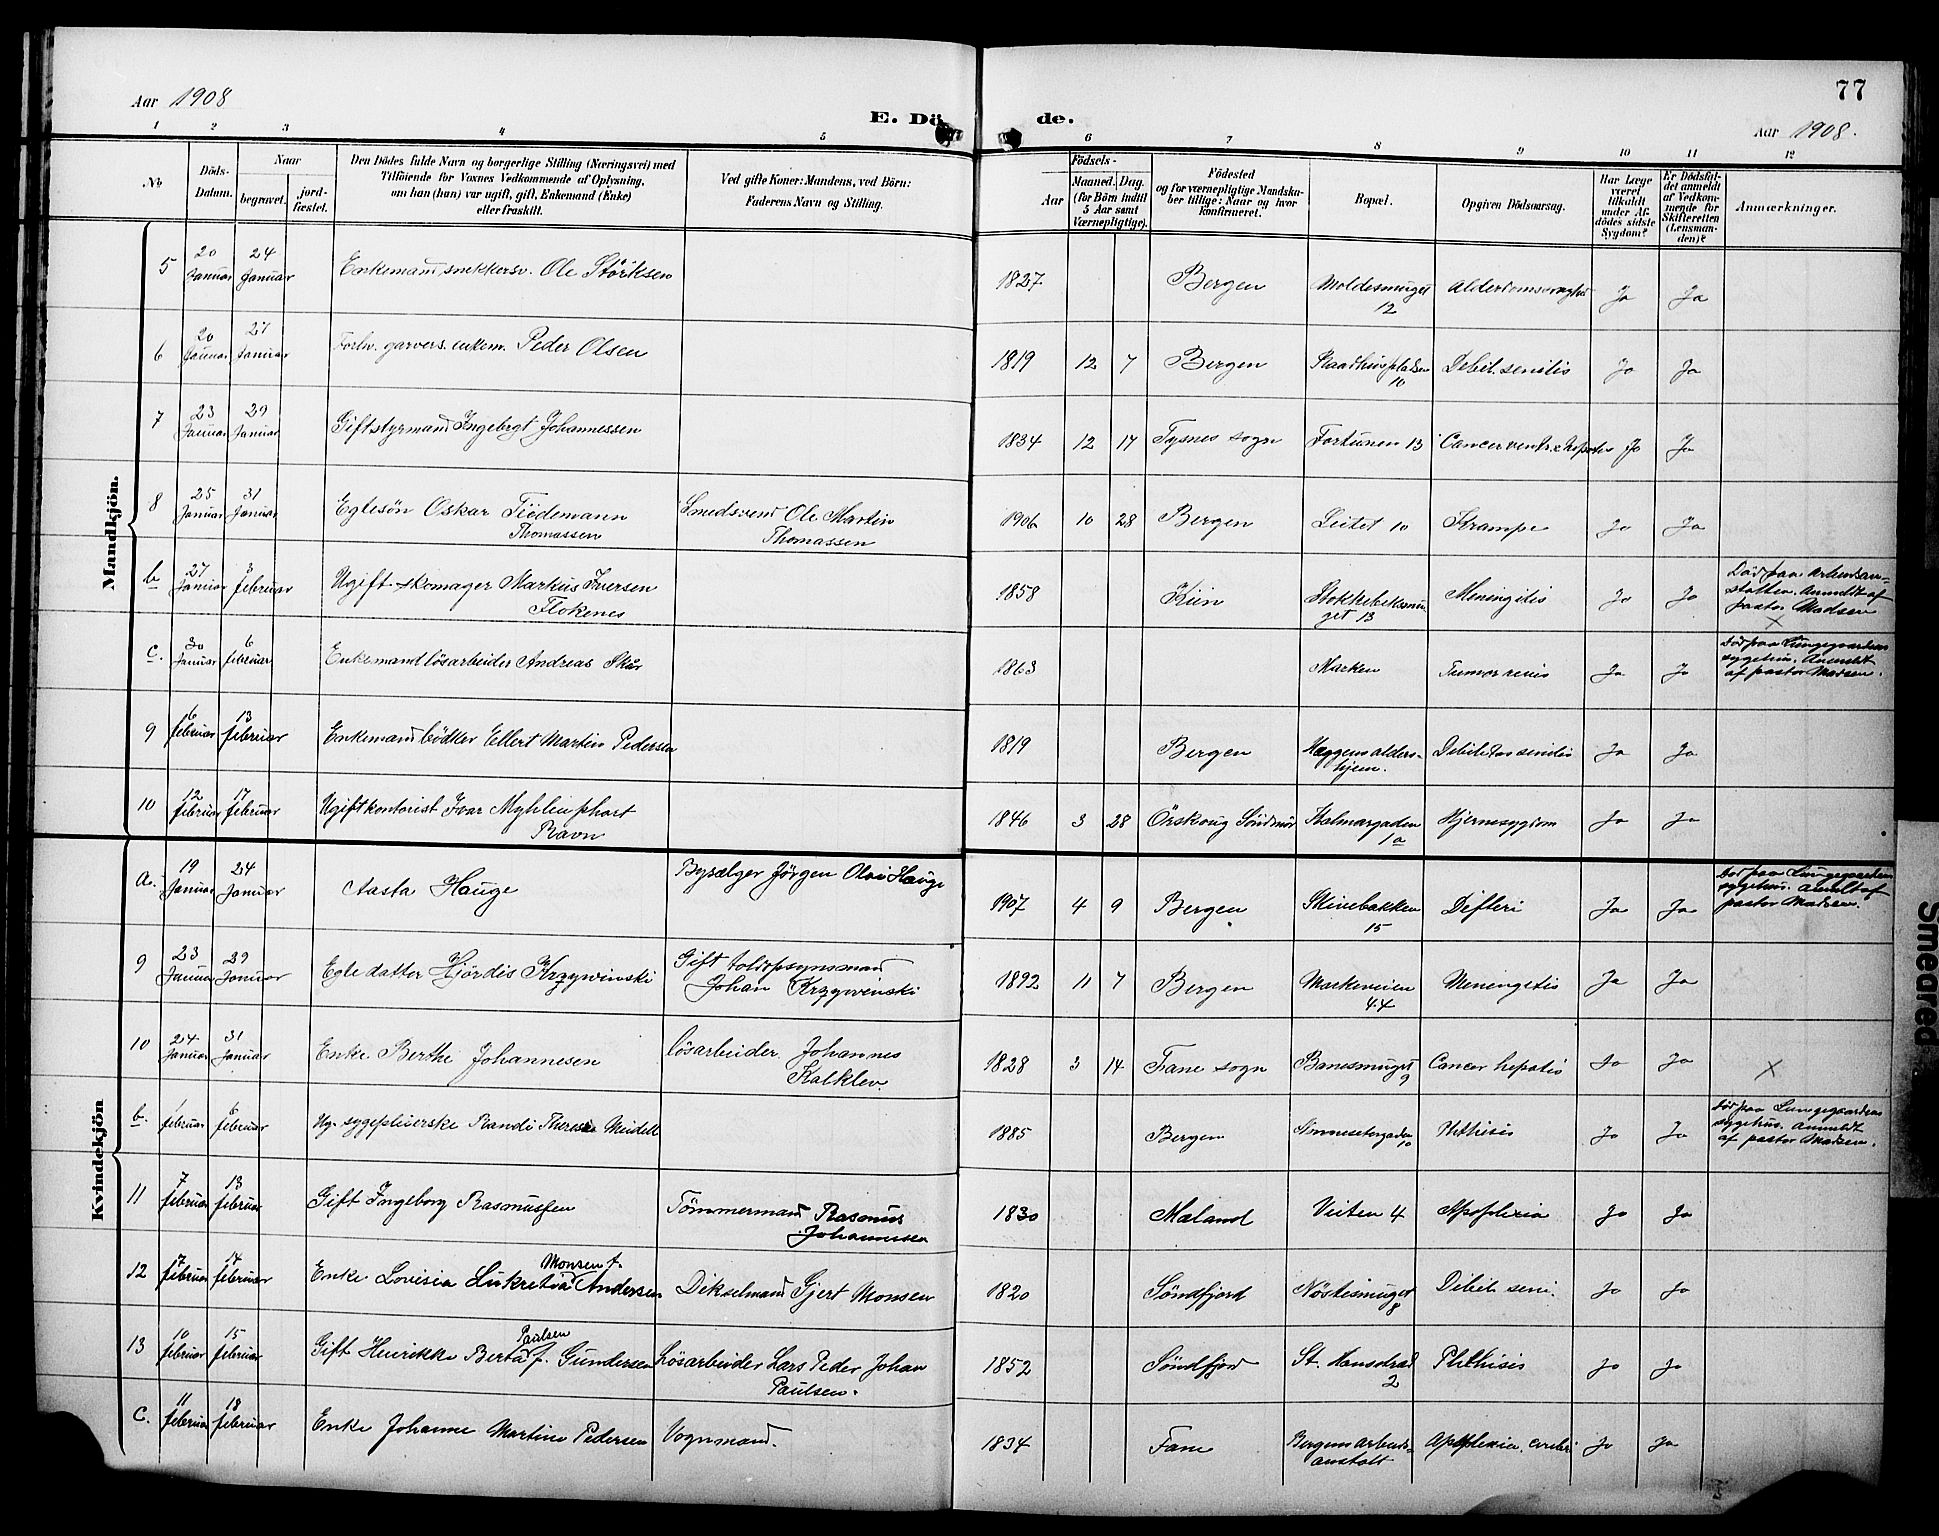 Aar 1908
E. Dö
de.
77
Aar 1908.
1 2 3 4 5 6 7 8 9 10 11 12
No
Döds-
Datum.
Naar
begravet.
jord-
fæstet.
Den Dödes fulde Navn og borgerlige Stilling (Næringsvei) med
Tilföiende for Voxnes Vedkommende af Oplysning,
om han (hun) var ugift, gift, Enkemand (Enke)
eller fraskilt.
Ved gifte Koner: Mandens, ved Börn:
Faderens Navn og Stilling.
Födsels-
Aar
Maaned. Dag.
(for Börn indtil
5 Aar samt
Værnepligtige).
Födested
og for værnepligtige Mandska-
ber tillige: Naar og hvor
konfirmeret.
Bopæl.
Opgiven Dödsaarsag.
Har Læge
været
tilkaldt
under Af-
dödes sidste
Sygdom?
Er Dödsfal-
det anmeldt
af Vedkom-
mende for
Skifteretten
(Lensman-
den)?
Anmærkninger.
Mandkjön.
5 20 Januar 24 Januar Enkemand snekkersv. Ole Störksen 1827 Bergen Moldesmuget 12 Alderdomssvaghed Ja Ja
6 20 Januar 27 Januar Forhv. garvers. enkem. Peder Olsen 1819 12 7 Bergen Raadhuspladsen 10 Debil. senilis Ja Ja
7 23 Januar 29 Januar Gift styrmand Ingebrgt Johannessen 1834 12 17 Tysnes sogn Fortunen 13 Cancer ventr. & hepatis Ja Ja
8 25 Januar 31 Januar Egtesön Oskar Tiedemann Smedsvend Ole Martin 1906 10 28 Bergen Leitet 10 Krampe Ja Ja
Thomassen Thomassen
b 27 Januar 3 februar Ugift skomager Markus Iversen 1858 Kin Stokkebeksmu- Meningitis Ja Ja Död paa Arbeidsan-
Flokenes get 13 stalten. Anmeldt af
pastor Madsen
X
c. 30 Januar 6 februar Enkemand lösarbeider Andreas Skår 1863 Marken Tumor renis Ja Ja Död paa Lungegaardens
sygehus. Anmeldt
af pastor Madsen.
9 6 februar 13 februar Enkemand bödker Ellert Martin Pedersen 1819 Bergen Hæggens alders- Debilitas senilis Ja Ja
hjem.
10 12 februar 17 februar Ugift kontorist Ivar Myhlenphort 1846 3 28 Örskoug Söndmör Kalmargaden Hjernesygdom Ja Ja
Ravn 1a
Kvindekjön
a. 19 Januar 24 Januar Aasta Hauge Bysælger Jörgen Olai Hauge 1907 4 9 Bergen Skivebakken 15 Difteri Ja Ja Död paa Lungegaardens
sygehus. Anmeldt af
pastor Madsen.
9 23 Januar 29 Januar Egte datter Hjördis Krzywinski Gift toldopsynsmand 1892 11 7 Bergen Markeveien 44 Meningitis Ja Ja
Johan Krzywinski
10 24 Januar 31 Januar Enke Berthe Johannesen lösarbeider Johannes 1828 3 14 Fane sogn Banesmuget 9 Cancer hepatis Ja Ja X
Kalklev.
b. 1 februar 6 februar Ug. sygepleierske Randi Therese Meidell 1885 Bergen 10 Phthisis Ja Ja Död paa Lungegaardens
sygehus. Anmeldt
af pastor Madsen.
11 7 februar 13 februar Gift Ingeborg Rasmussen Tömmermand Rasmus 1830 Maland Veiten 4 Apoplexia Ja Ja
Johannessen
12 7 februar 14 februar Enke Lovisia Lukretia Monsen f. Andersen Dikselmand Gjert Monsen 1820 Söndfjord Nöstesmuget 8 Debil. seni. Ja Ja
13 10 februar 15 februar Gift Henrikke Berta Paulsen f. Gundersen Lösarbeider Lars Peder Johan 1852 Söndfjor St. Hansstræd 2 Phthisis Ja Ja
Paulsen.
c. 11 februar 18 februar Enke Johanne Martine Pedersen Vognmand. 1834 Fane Bergens arbeids- Apoplexia cerebri Ja Ja
anstalt
Smeared